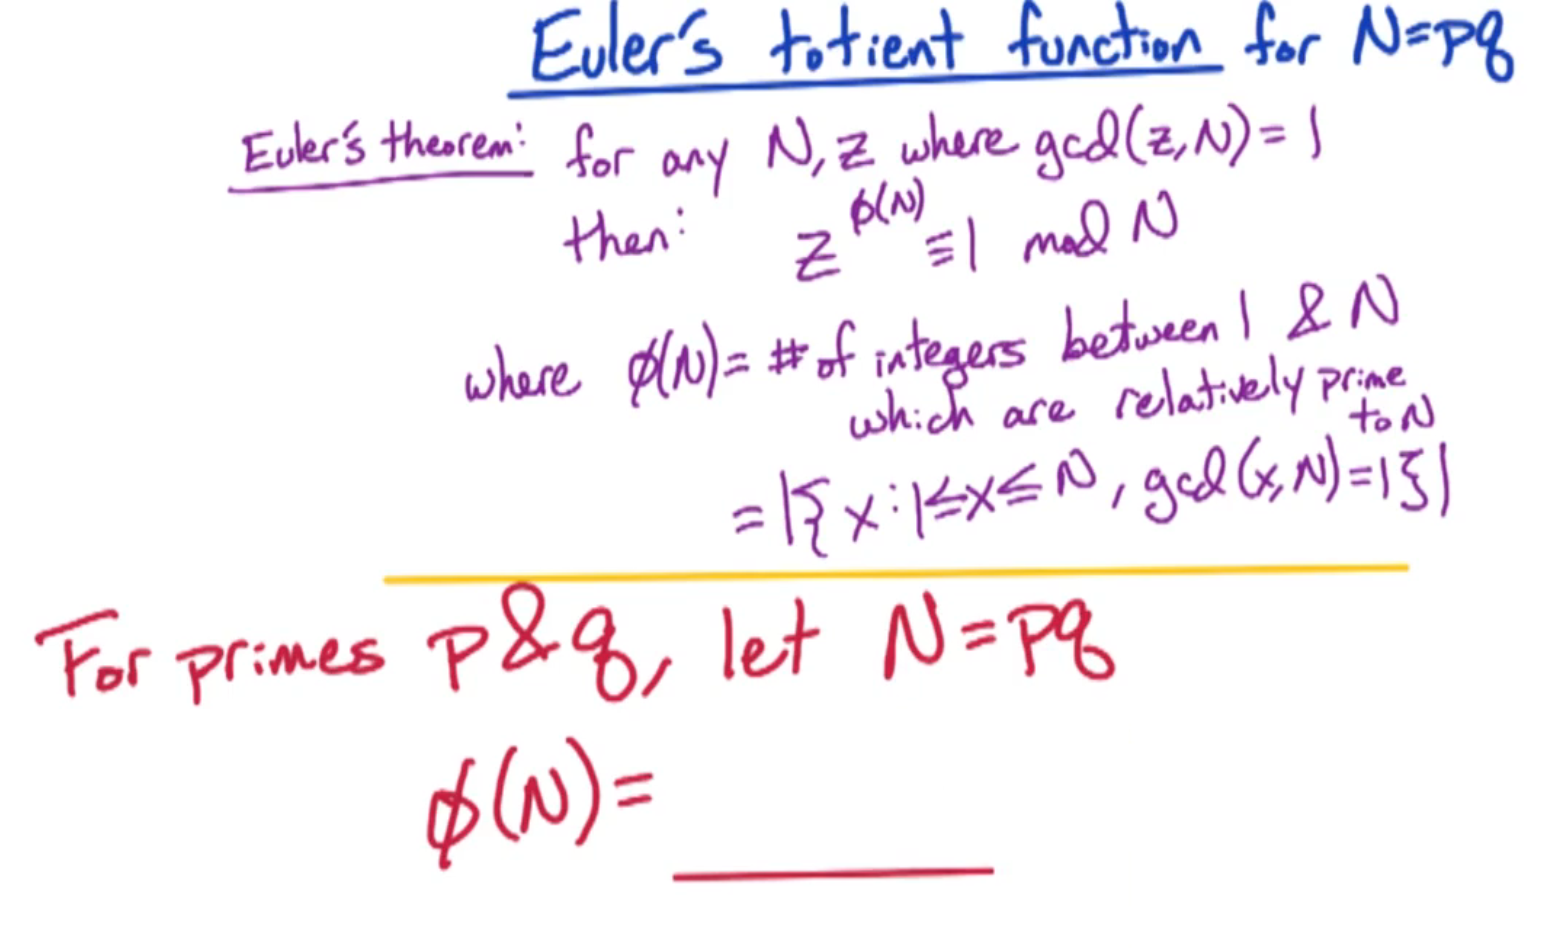 Euler's totient function for N=pq
Euler's theorem: for any N, z where gcd(z,N)=1
then: z^ϕ(N) ≡1 mod N
where ϕ(N)= # of integers between 1 & N
which are relatively prime
to N
=|{x:1≤x≤N, gcd(x,N)=1}|
For primes p&q, let N=pq
ϕ(N)=